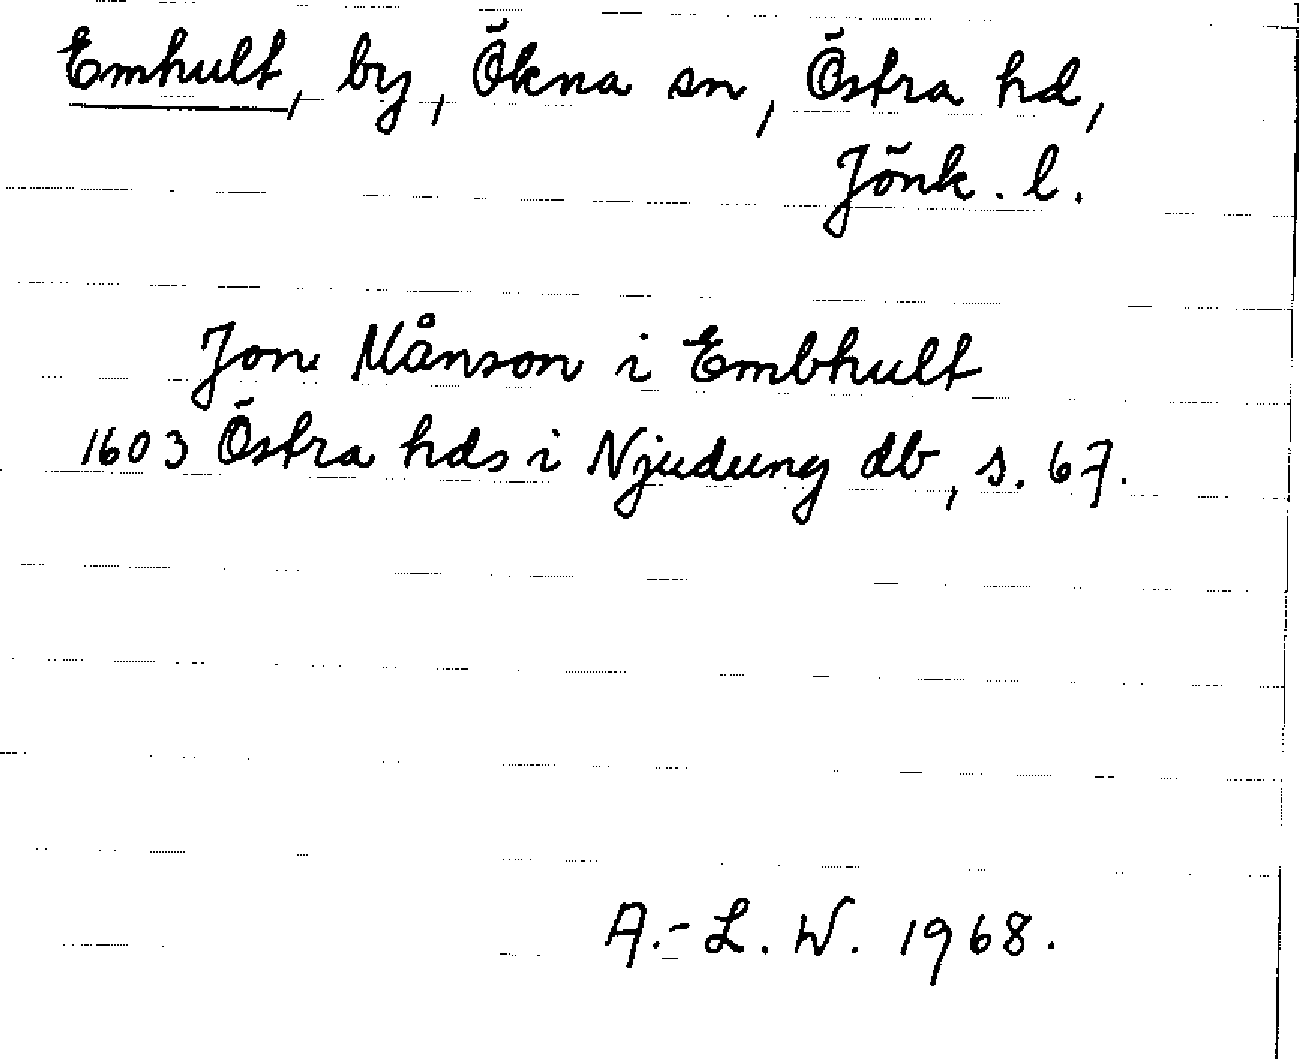 Emhult, by, Ökna sn, Östra hd,
Jönk. l.
Jon Månson i Embhult
1603 Östra hds i Njudung db, s. 67.
A.-L. W. 1968.